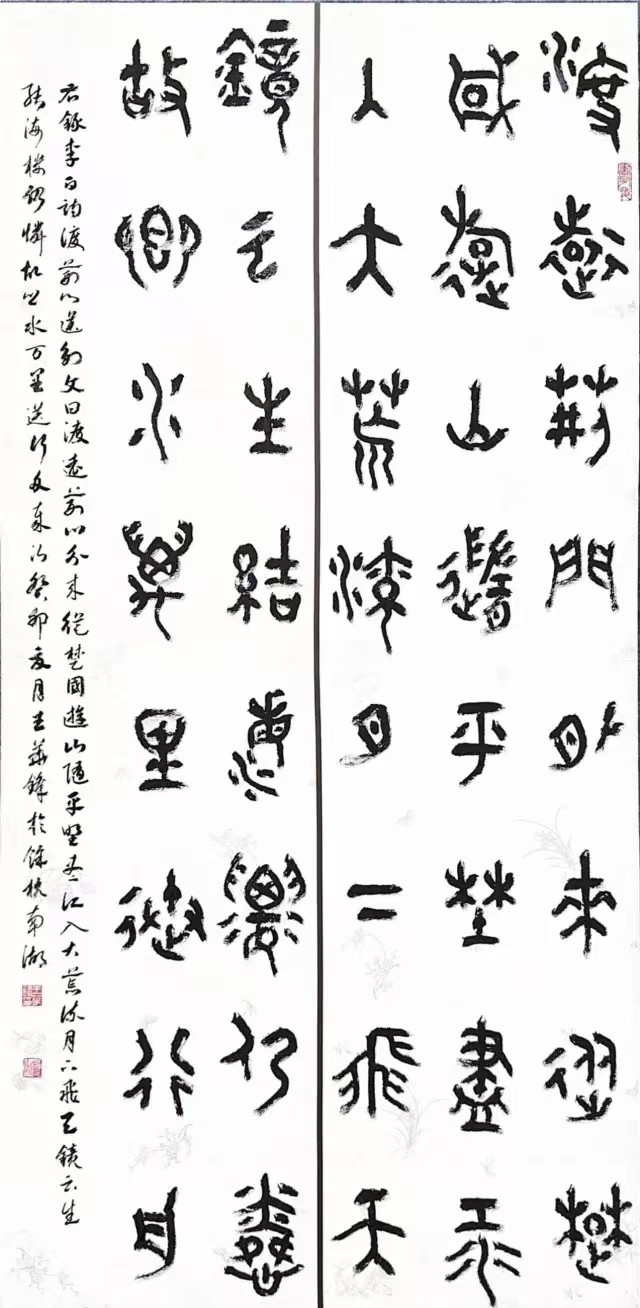 渡遠荊門外來從楚
國遊山隨平埜盡江
入大荒流月下飛天
鏡云生結海樓仍憐
故鄉水萬里送行舟
右錄李白詩渡荊門送別文曰渡遠荊門外來從楚國遊山隨平野盡江入大荒流月下飛天鏡云生
結海樓仍憐故鄉水万里送行舟歲次癸卯夏月王華鋒於餘杭南湖